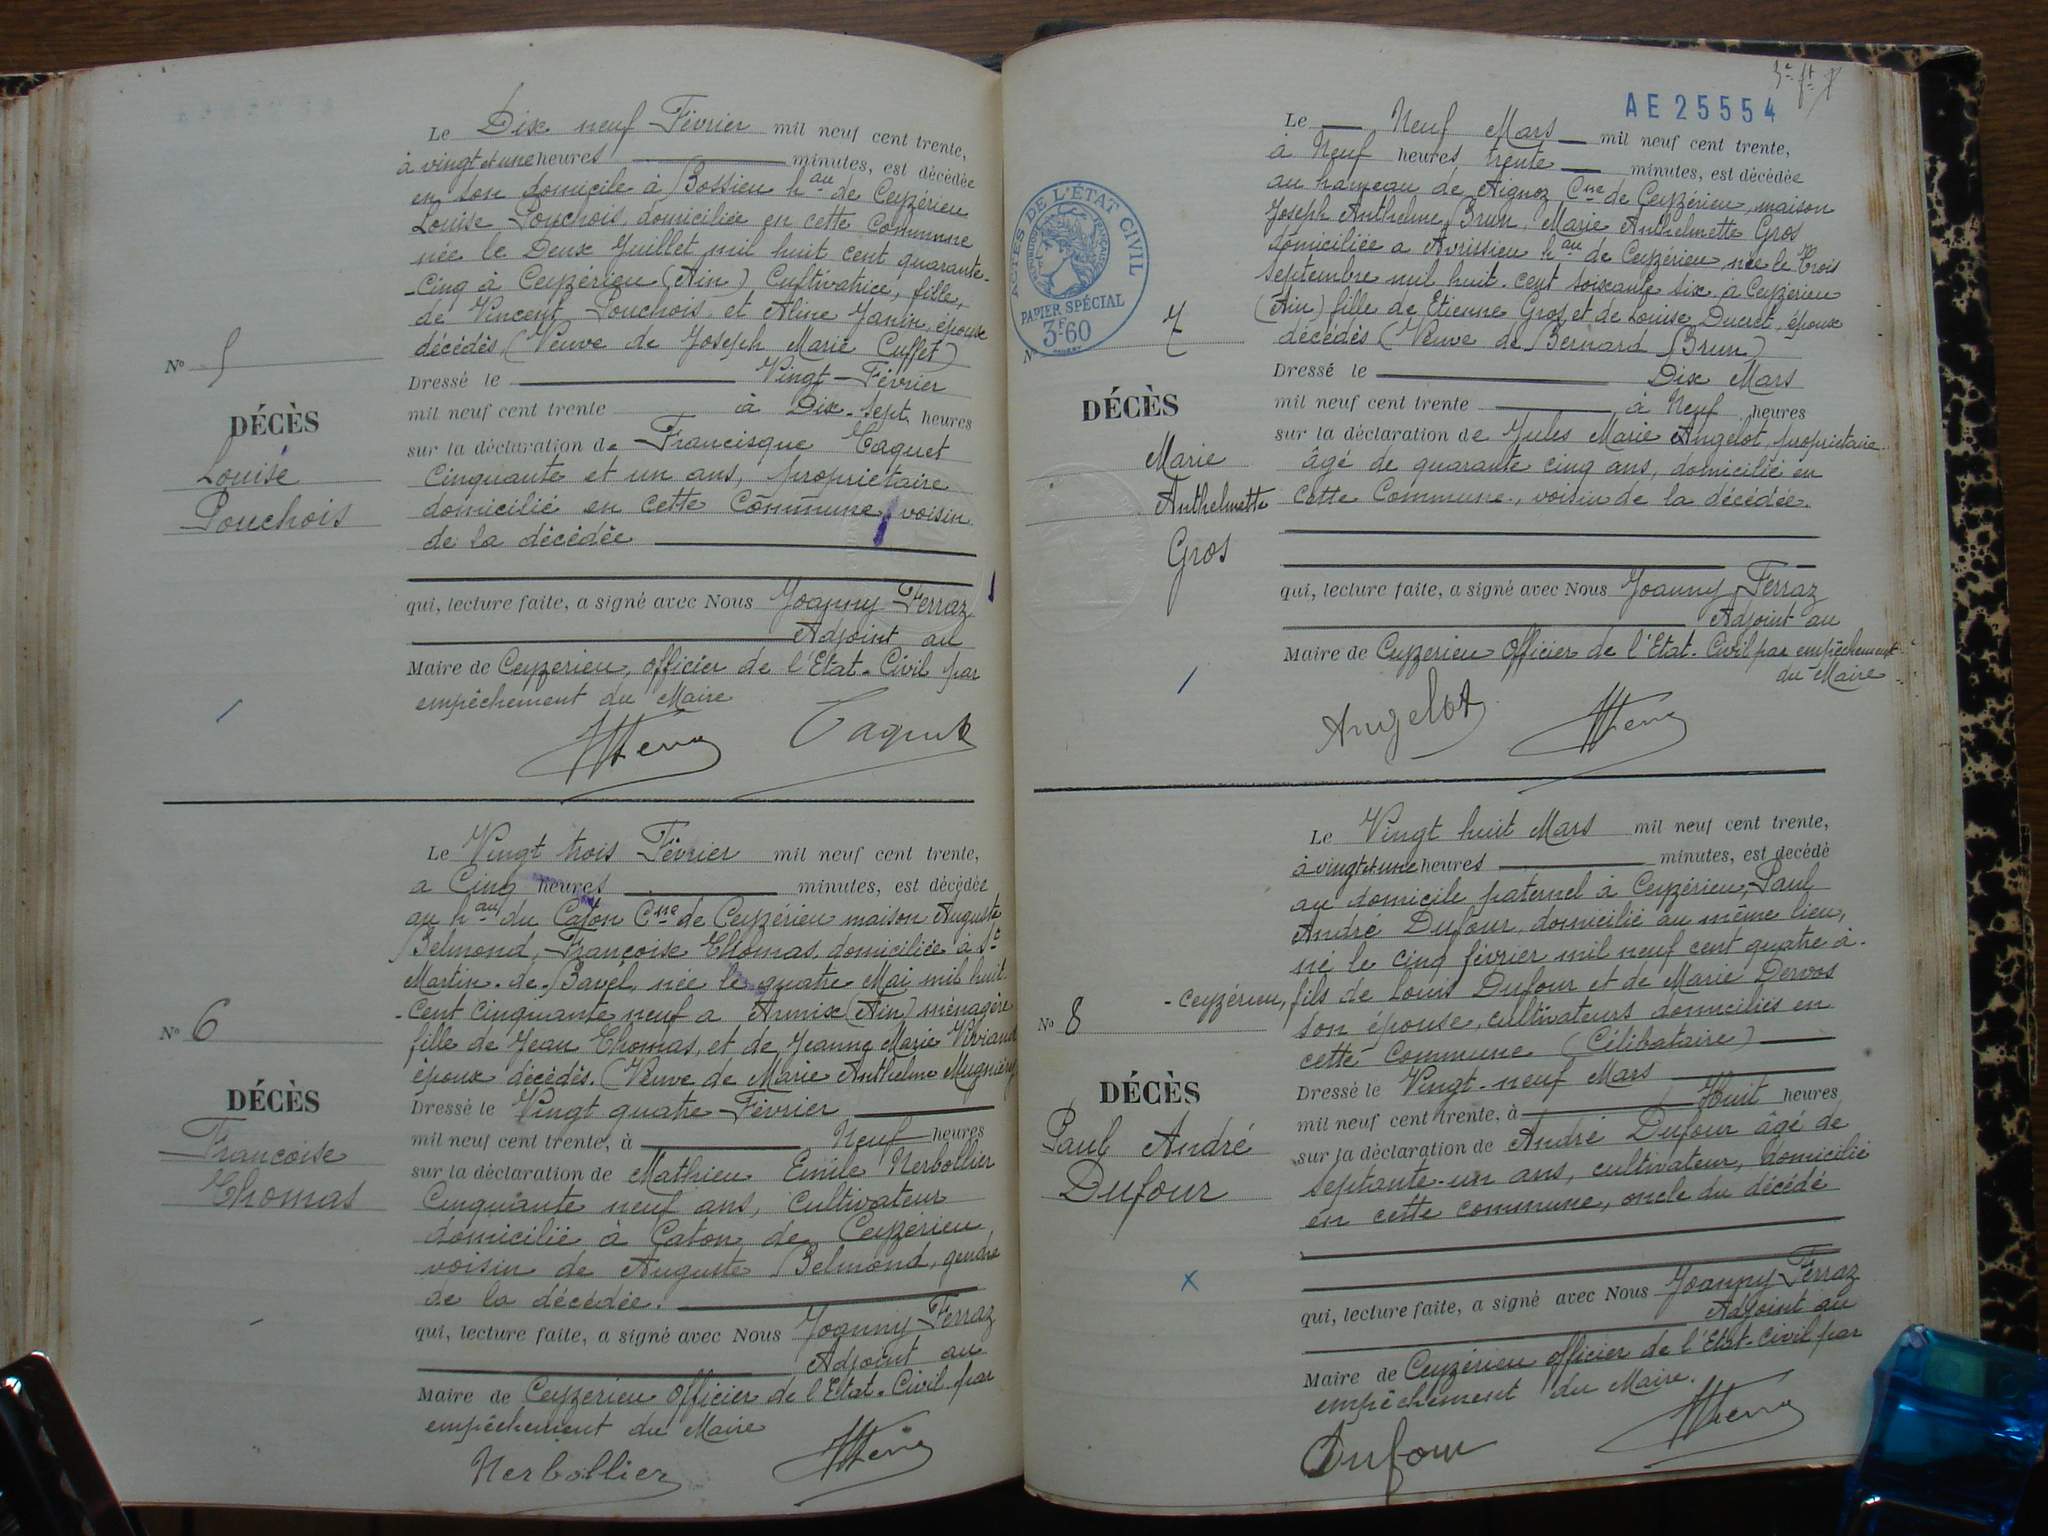 Le Dix neuf Février mil neuf cent trente,
à vingt et une heures minutes, est décédée
en son domicile à Bossieu hau de Ceyzérieu
Louise Pouchois, domiciliée en cette Commune
née le Deux Juillet mil huit cent quarante-
-Cinq à Ceyzérieu (Ain), Cultivatrice, fille,
de Vincent Pouchois et Aline Janin, époux
décédés, (Veuve de Joseph Marie Cuffet)
N° 5
DÉCÈS
Louise
Pouchois
Dressé le Vingt Février
mil neuf cent trente à Dix-Sept heures
sur la déclaration de Francisque Taquet
Cinquante et un ans, propriétaire
domicilié en cette Commune, voisin
de la décédée
qui, lecture faite, a signé avec Nous Joanny Ferraz
Adjoint au
Maire de Ceyzerieu, officier de l'Etat-Civil par
empêchement du Maire
Taquet
Le Vingt trois Février mil neuf cent trente,
a Cinq heures minutes, est décédée
au hau du Caton Cne de Ceyzérieu maison Auguste
Belmond, Françoise Thomas, domiciliée à St
Martin-de-Bavel, née le quatre Mai mil huit
-Cent Cinquante neuf a Armix (Ain) ménagère
fille de Jean Thomas, et de Jeanne Marie Viviand
époux décédés. (Veuve de Marie Anthelme Mugniéry
N° 6
DÉCÈS
Françoise
Thomas
Dressé le Vingt quatre Février
mil neuf cent trente, à Neuf heures
sur la déclaration de Mathieu Emile Nerbollier
Cinquante neuf ans, Cultivateur
domicilié à Caton de Ceyzerieu
voisin de Auguste Belmond, gendre
de la décédée.
qui, lecture faite, a signé avec Nous Joanny Ferraz
Adjoint au
Maire de Ceyzerieu Officier de l'Etat-Civil par
empêchement du Maire
Nerbollier
AE 25554
Le Neuf Mars mil neuf cent trente,
à Neuf heures trente minutes, est décédée
au hameau de Aignoz Cne de Ceyzérieu, maison
Joseph Anthelme Brun, Marie Anthelmette Gros
domiciliée a Avrissieu hau de Ceyzérieu, née le Trois
septembre mil huit-cent soixante six a Ceyzerieu
(Ain) fille de Etienne Gros, et de Louise Ducret, époux
décédés (Veuve de Bernard Brun)
ACTES DE L'ÉTAT CIVIL
RÉPUBLIQUE FRANÇAISE
PAPIER SPÉCIAL
3F60
N° 7
DÉCÈS
Marie
Anthelmette
Gros
Dressé le Dix Mars
mil neuf cent trente à Neuf heures
sur la déclaration de Jules Marie Angelot, propriétaire
âgé de quarante cinq ans, domicilié en
cette Commune, voisin de la décédée.
qui, lecture faite, a signé avec Nous Joanny Ferraz
Adjoint au
Maire de Ceyzerieu Officier de l'Etat-Civil par empêchement
du Maire
Angelot
Le Vingt huit Mars mil neuf cent trente,
à vingt et une heures minutes, est decédé
au domicile paternel à Ceyzérieu, Paul
André Dufour, domicilié au même lieu,
né le cinq février mil neuf cent quatre à-
-Ceyzérieu, fils de Louis Dufour et de Marie Dervos
son épouse, cultivateurs domiciliés en
cette Commune (Célibataire)
N° 8
DÉCÈS
Paul André
Dufour
Dressé le Vingt-neuf Mars
mil neuf cent trente, à Huit heures
sur la déclaration de André Dufour âgé de
septante-un ans, cultivateur, domicilié
en cette commune, oncle du décédé
qui, lecture faite, a signé avec Nous Joanny Ferraz
Adjoint au
Maire de Ceyzérieu officier de l'Etat-Civil par
empêchement du Maire.
Dufour